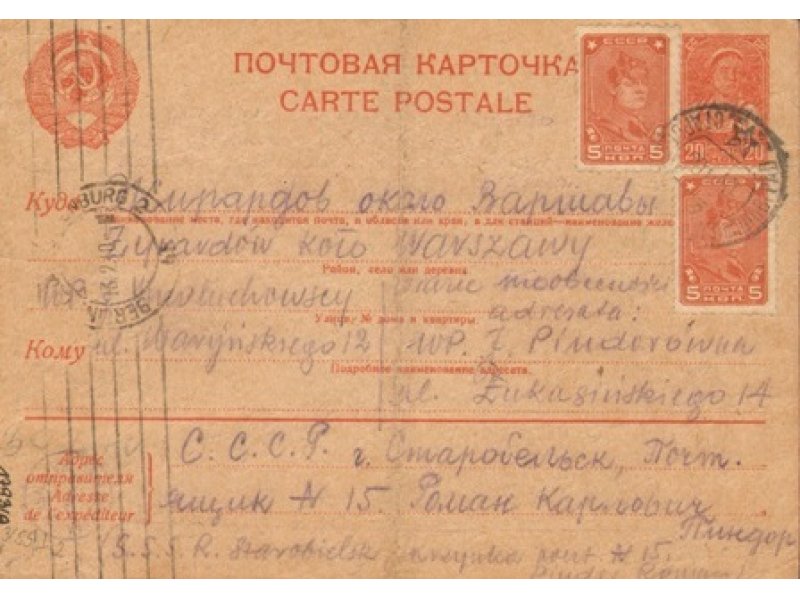 ПОЧТОВАЯ КАРТОЧКА
CARTE POSTALE
СССР
5 ПОЧТА КОП. 5
20 20
5 ПОЧТА КОП. 5
Куда Жирардов около Варшавы
Наименование места, где находится почта, и области или края, а для станций—наименование желез
Żyrardów koło Warszawy
Район, село или деревня
w razie nieobecności
Улица, № дома и квартиры
adresata:
Кому ul. Waryńskiego 12 WP. J. Pindorówna
Подробное наименование адресата.
ul. Łukasińskiego 14
С.С.С.Р. г. Старобельск, Почт.
Адрес отправителя
Adresse de l'expéditeur
ящик N 15. Роман Карлович
Пиндор
S.S.S.R. Starobielsk skrzynka poczt N 15.
Pindor Roman
BERLIN